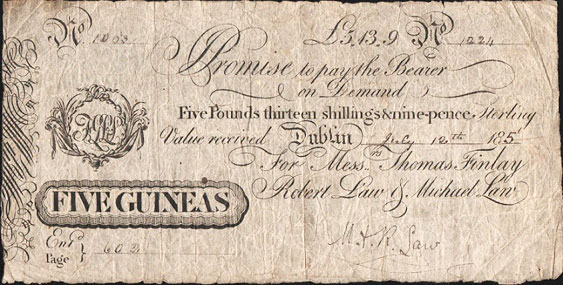 No 1203 £5,,13,,9 No 1224
I Promise to pay the Bearer
on Demand
Five Pounds thirteen shillings & nine-pence Sterling
Value received Dublin July 12th
For Messrs Thomas Finlay
Robert Law & Michael Law
FIVE GUINEAS
Entd
Page
Law